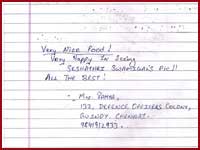 Very Nice Food!
Very Happy In Seeing
SESHADHRI SWAMIGAL'S Pic!!
ALL THE BEST!
Mrs
132, DEFENCE OFFICERS COLONY,
GUINDY. CHENNAI.